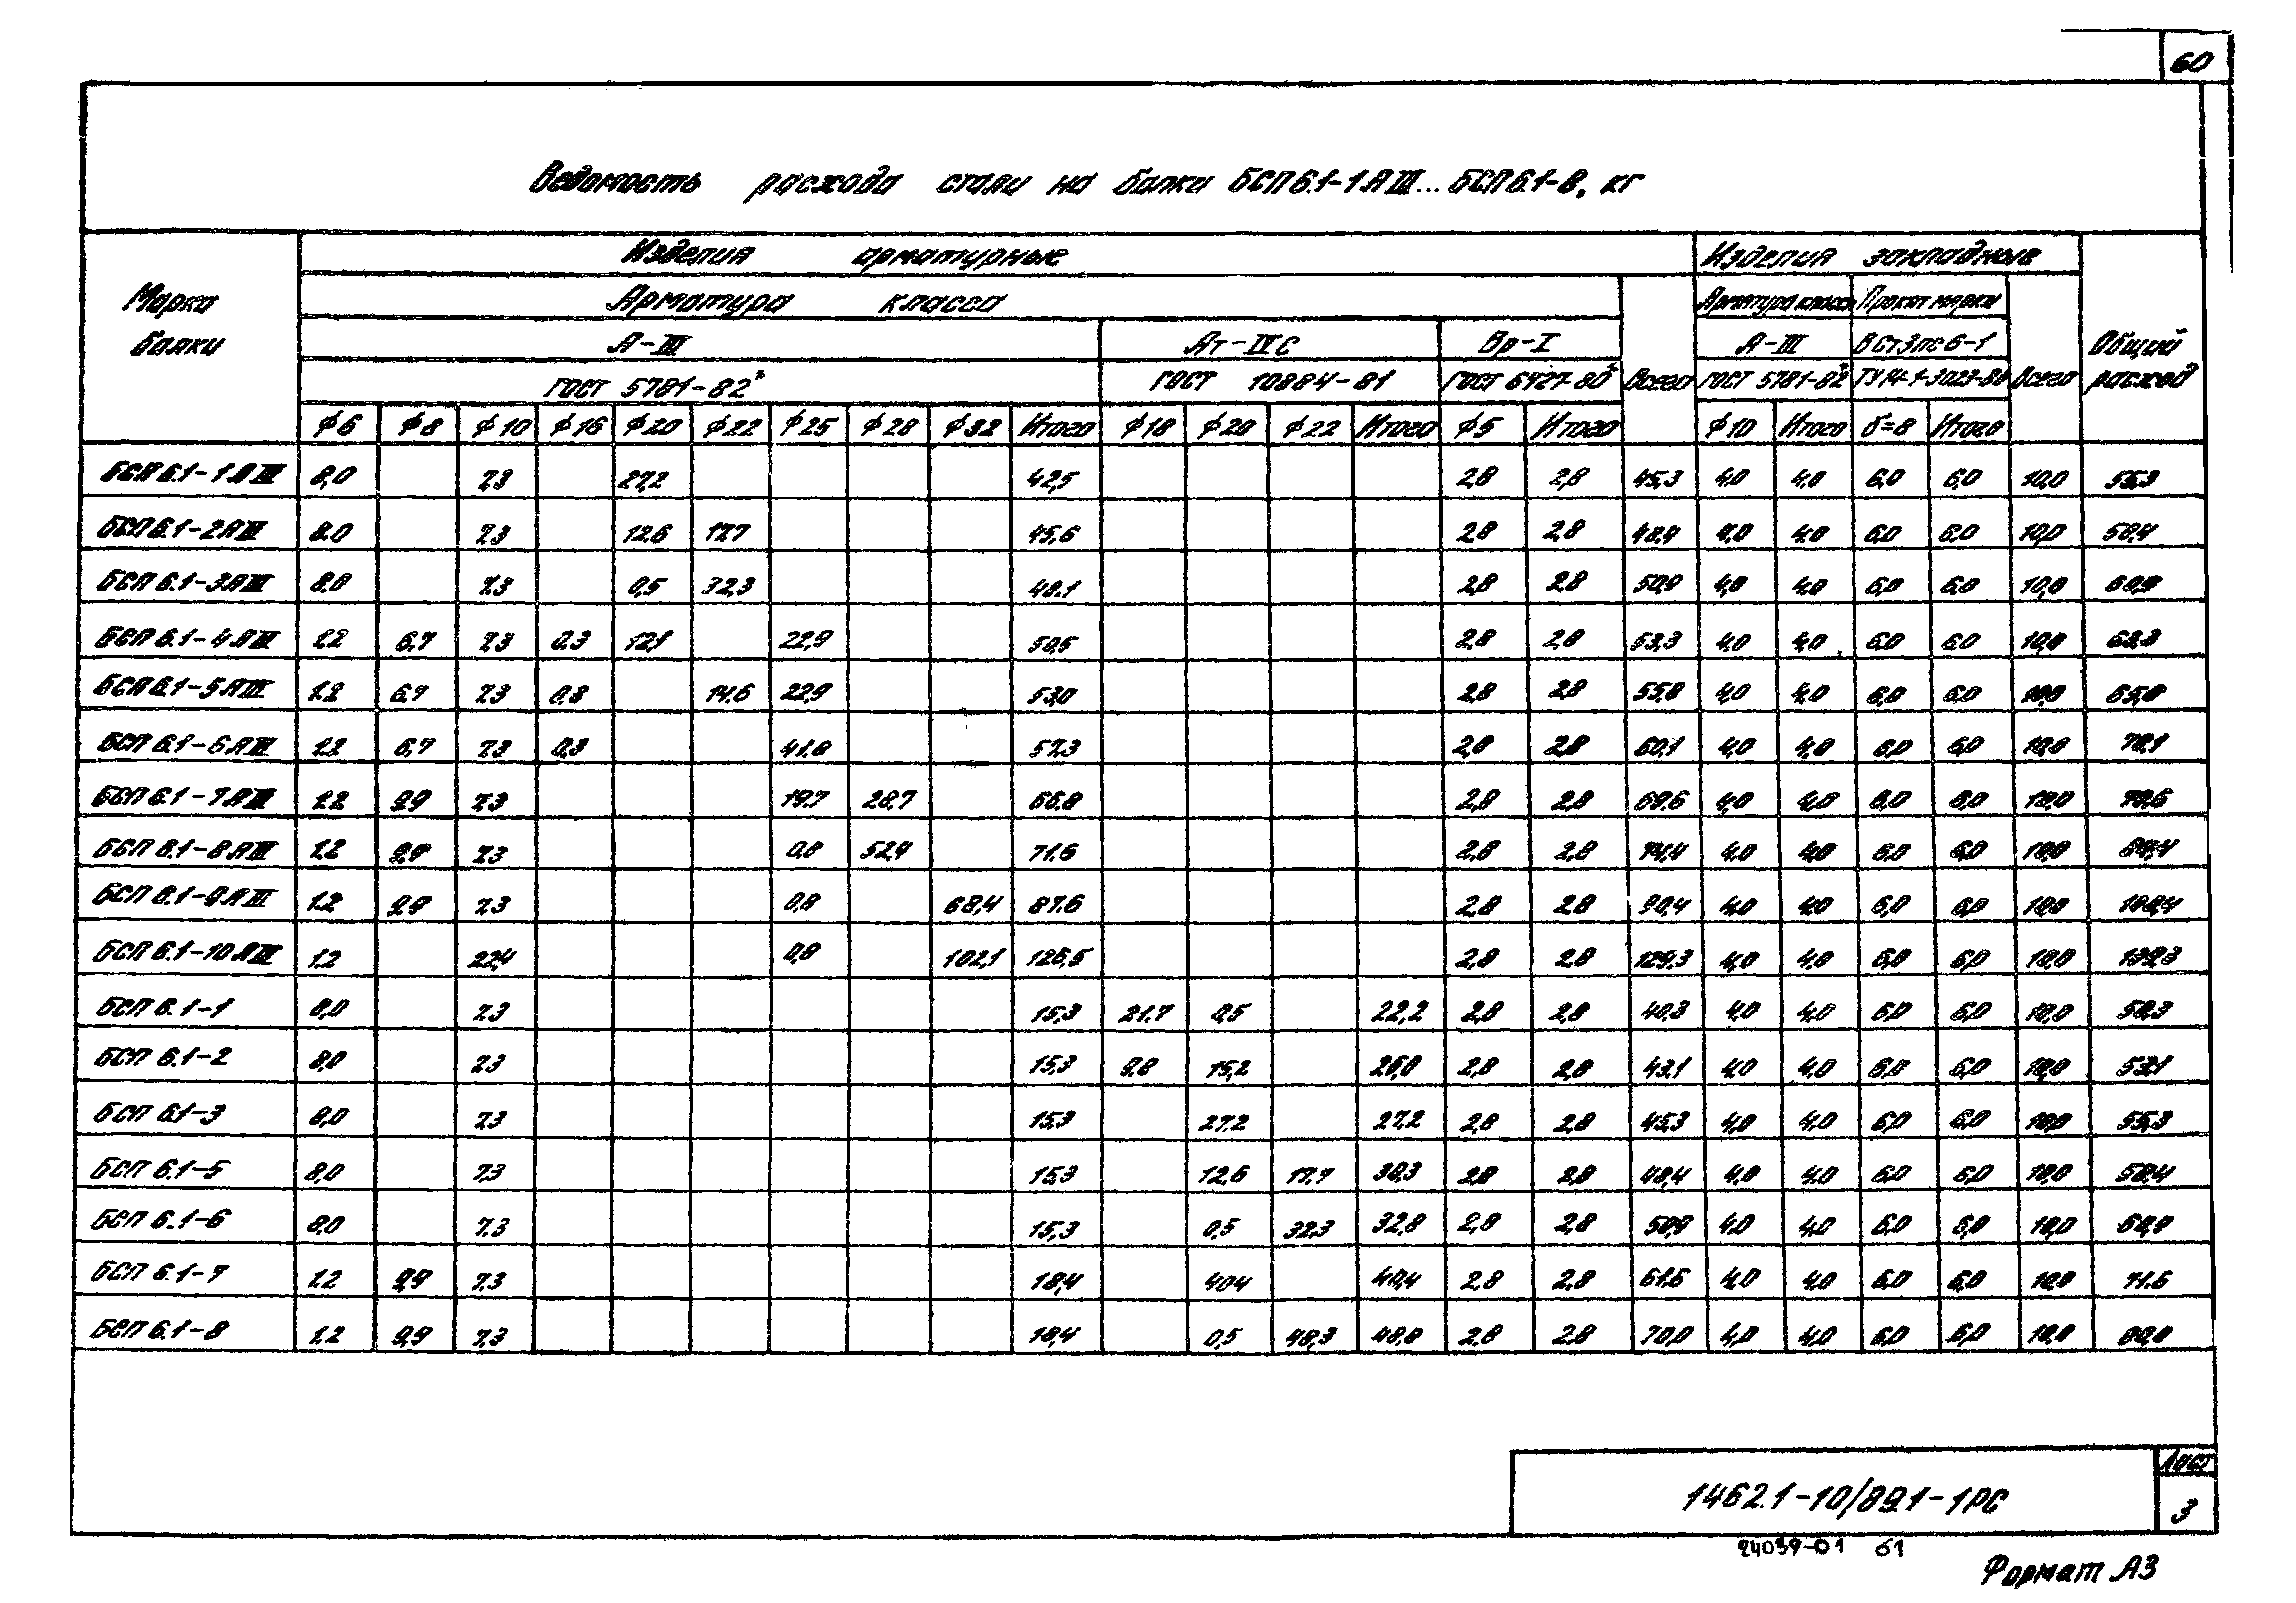 60
Ведомость расхода стали на балки БСП6.1-1АIII...БСП6.1-8, кг
Марка балки
Изделия арматурные
Изделия закладные
Общий расход
Арматура класса
Всего
Арматура класса
Прокат марки
Всего
А-III
Ат-IVС
Вр-I
А-III
ВСт3пс6-1
ГОСТ 5781-82*
ГОСТ 10884-81
ГОСТ 6727-80*
ГОСТ 5781-82*
ТУ14-1-3023-80
ф6 ф8 ф10 ф16 ф20 ф22 ф25 ф28 ф32 Итого ф18 ф20 ф22 Итого ф5 Итого ф10 Итого δ=8 Итого
БСП 6.1-1АIII 8,0 7.3 27,2 42,5 2,8 2,8 45,3 4.0 4.0 6,0 6,0 10,0 55,3
БСП 6.1-2АIII 8.0 7.3 12.6 17.7 45,6 2,8 2,8 48,4 4,0 4,0 6,0 6,0 10,0 58,4
БСП 6.1-3АIII 8.0 7.3 0,5 32,3 48.1 2,8 2,8 50,9 4,0 4,0 6,0 6,0 10,0 60,9
БСП 6.1-4АIII 1.2 6,7 7.3 0.3 12,1 22,9 50,5 2,8 2,8 53,3 4,0 4,0 6,0 6,0 10,0 63,3
БСП 6.1-5АIII 1.2 6,7 7.3 0,3 14,6 22,9 53,0 2,8 2,8 55,8 4,0 4,0 6,0 6,0 10,0 65,8
БСП 6.1-6АIII 1.2 6,7 7.3 0,3 41.8 57,3 2,8 2,8 60,1 4,0 4,0 6,0 6,0 10,0 70,1
БСП 6.1-7АIII 1.2 9,9 7.3 19.7 28,7 66,8 2,8 2,8 69,6 4,0 4,0 6,0 6,0 10,0 79,6
БСП 6.1-8АIII 1.2 9,9 7.3 0,8 52,4 71.6 2,8 2,8 74,4 4.0 4,0 6,0 6,0 10,0 84,4
БСП 6.1-9АIII 1.2 9,9 7.3 0,8 68,4 87.6 2,8 2,8 90,4 4,0 4,0 6,0 6,0 10,0 100,4
БСП 6.1-10АIII 1.2 22,4 0,8 102,1 126,5 2,8 2,8 129.3 4,0 4,0 6,0 6,0 10,0 139,3
БСП 6.1-1 8,0 7.3 15,3 21.7 0,5 22,2 2,8 2,8 40,3 4,0 4,0 6,0 6,0 10,0 50,3
БСП 6.1-2 8,0 7.3 15,3 9.8 15,2 2,8 2,8 43.1 4,0 4,0 6,0 6,0 10,0 53,1
БСП 6.1-3 8,0 7.3 15,3 27.2 27,2 2,8 2,8 45,3 4,0 4,0 6,0 6,0 10,0 55,3
БСП 6.1-5 8,0 7,3 15,3 12,6 17.7 30,3 2,8 2,8 48,4 4,0 4,0 6,0 6,0 10,0 58,4
БСП 6.1-6 8,0 7.3 15,3 0,5 32.3 32,8 2,8 2,8 50,9 4,0 4,0 6,0 6,0 10,0 60,9
БСП 6.1-7 1.2 9,9 7.3 18,4 40,4 40,4 2,8 2,8 61.6 4,0 4,0 6,0 6,0 10,0 71.6
БСП 6.1-8 1.2 9,9 7.3 18,4 0,5 48,3 48,8 2,8 2,8 70,0 4,0 4,0 6,0 6,0 10,0 80,0
1462.1-10/89.1-1РС
Лист
3
24039-01 61
Формат А3